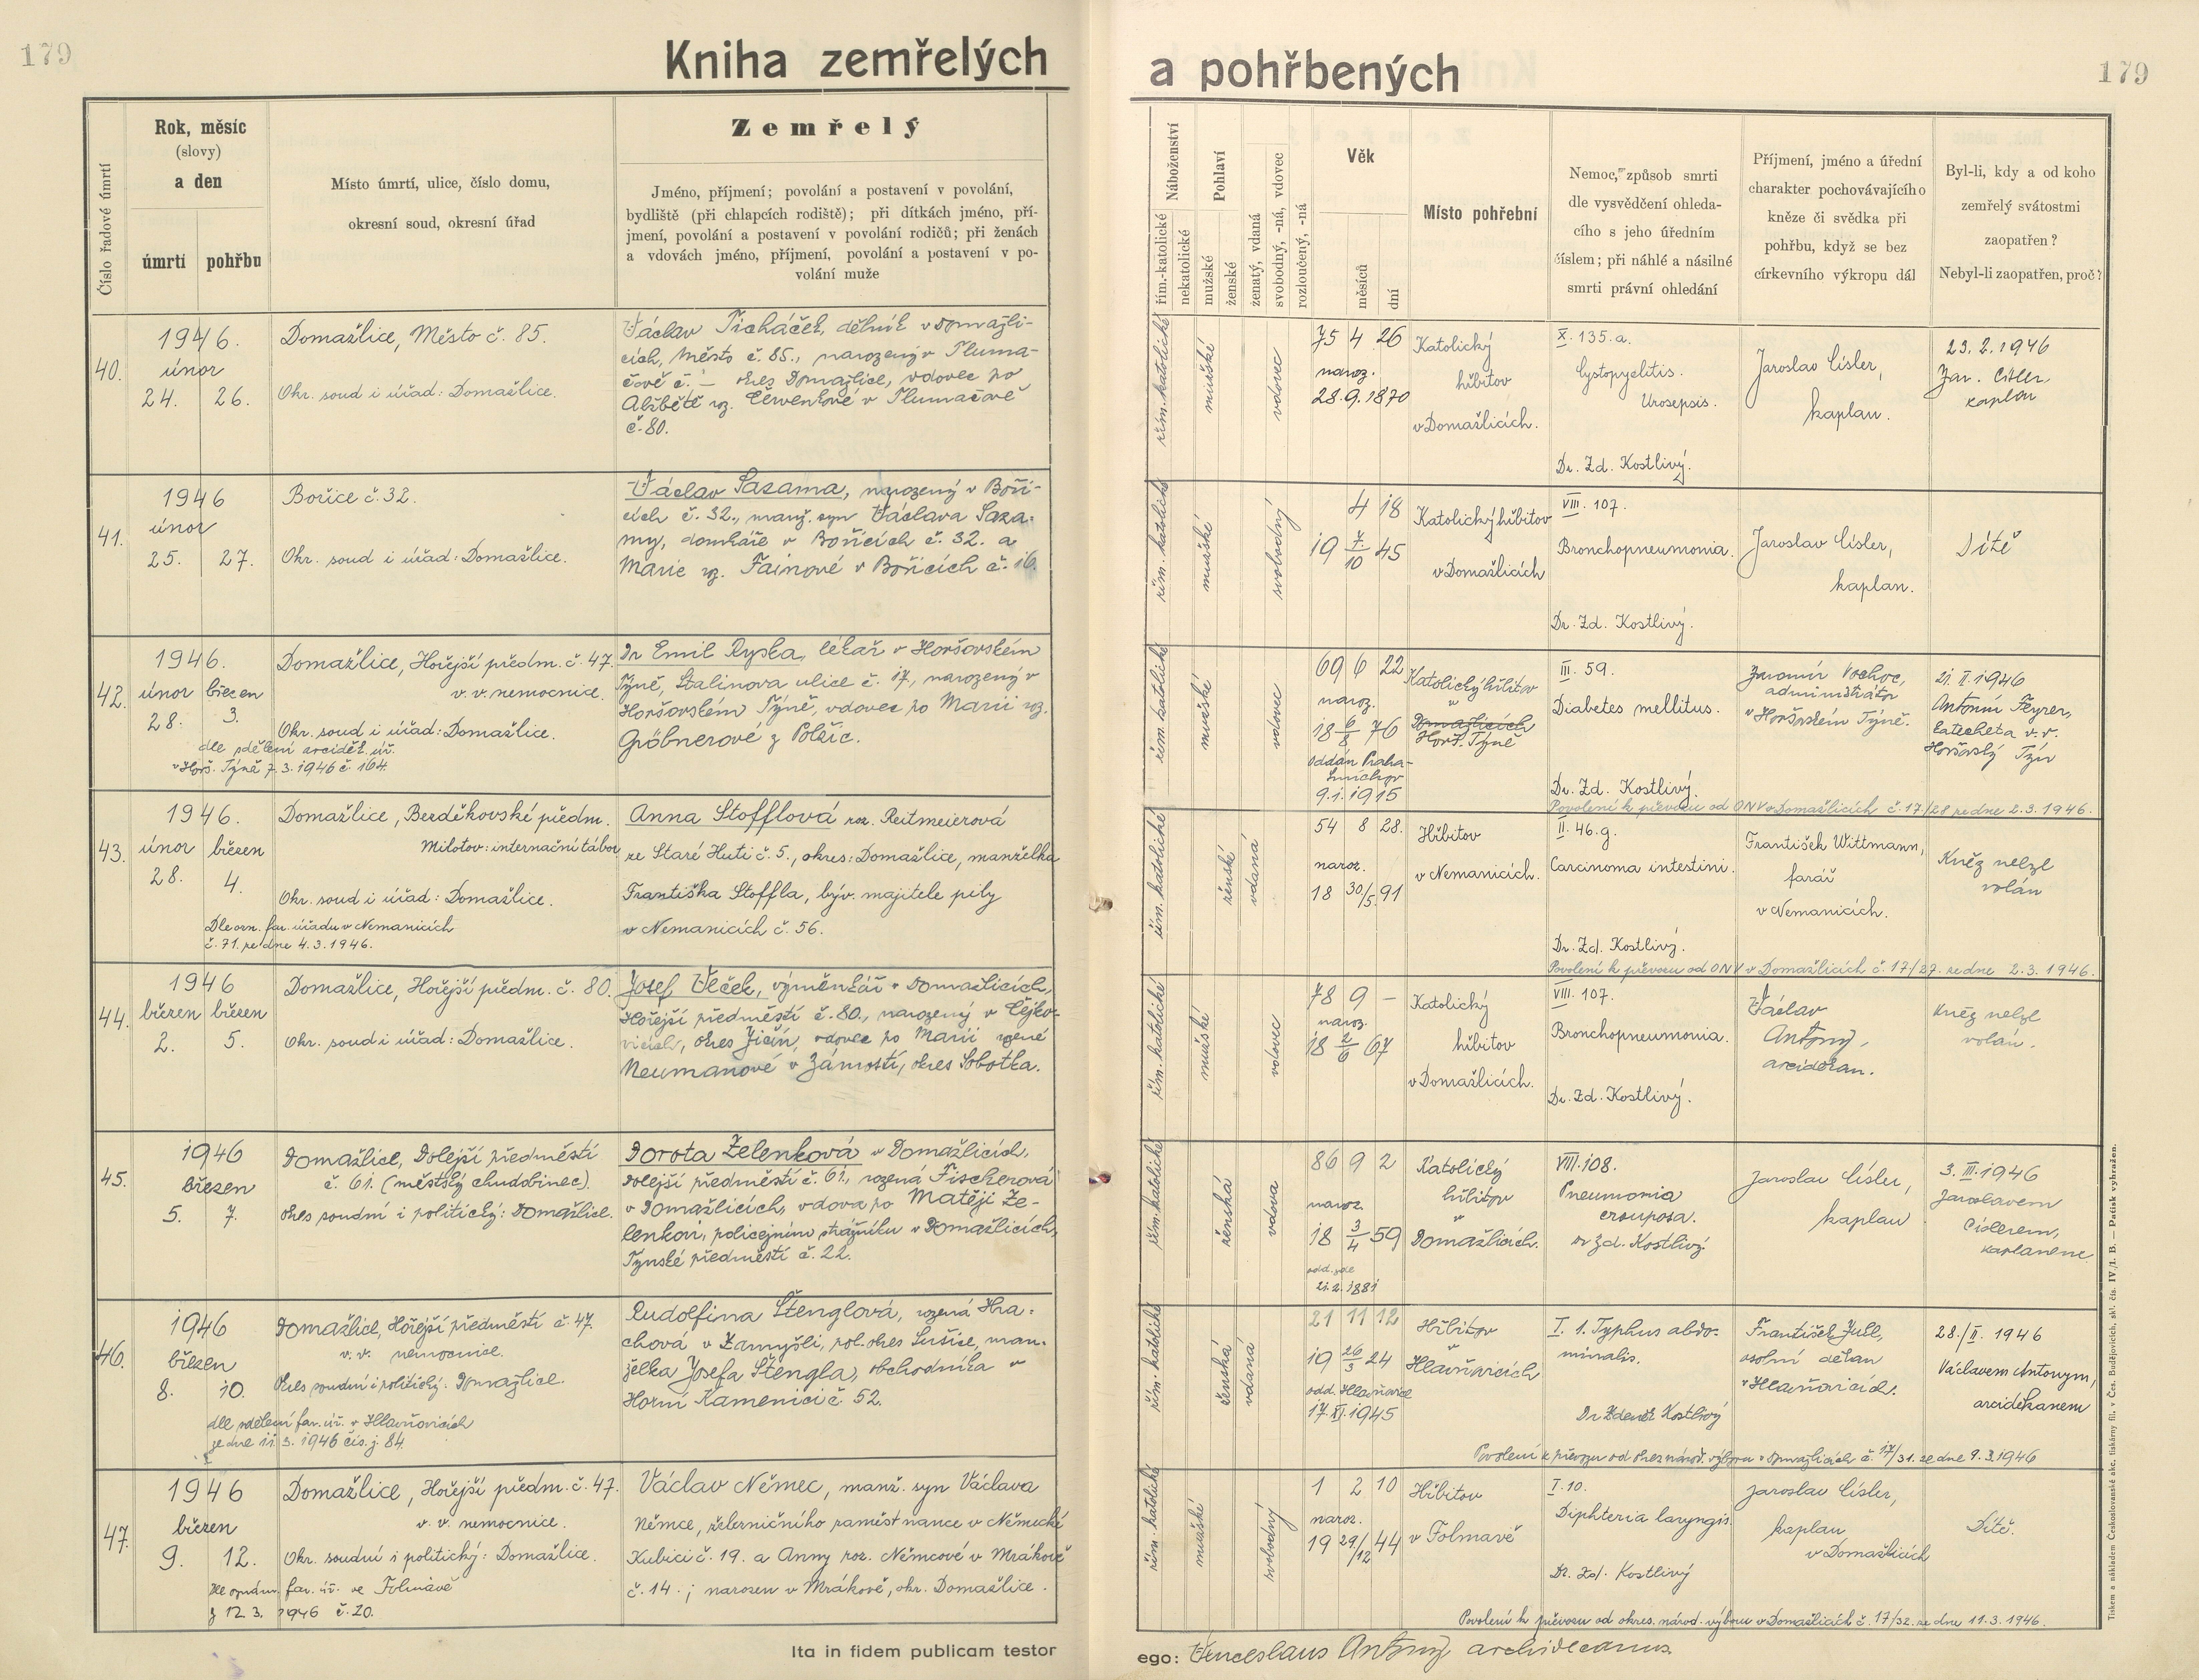 179
Kniha zemřelých
a pohřbených
179
Číslo řadové úmrtí
Rok, měsíc
(slovy)
a den
úmrtí
pohřbu
Místo úmrtí, ulice, číslo domu,
okresní soud, okresní úřad
Zemřelý
Jméno, příjmení; povolání a postavení v povolání,
bydliště (při chlapcích rodiště); při dítkách jméno, pří-
jmení, povolání a postavení v povolání rodičů; při ženách
a vdovách jméno, příjmení, povolání a postavení v po-
volání muže
Náboženství
řím.-katolické
nekatolické
Pohlaví
mužské
ženské
ženatý, vdaná
svobodný, -ná, vdovec
rozloučený, -ná
Věk
měsíců
dní
Místo pohřební
Nemoc, způsob smrti
dle vysvědčení ohleda-
cího s jeho úředním
číslem; při náhlé a násilné
smrti právní ohledání
Příjmení, jméno a úřední
charakter pochovávajícího
kněze či svědka při
pohřbu, když se bez
církevního výkropu dál
Byl-li, kdy a od koho
zemřelý svátostmi
zaopatřen?
Nebyl-li zaopatřen, proč?
40.
1946.
únor
24. 26.
Domažlice, Město č. 85.
Okr. soud i úřad: Domažlice.
Václav Ticháček, dělník v Domažli-
cích, Město č. 85., narozený v Tluma-
čově č. – okres Domažlice, vdovec po
Alžbětě roz. Červenkové v Tlumačově
č. 80.
řím. katolické
mužské
vdovec
75 4 26
naroz.
28.9.1870
Katolický
hřbitov
v Domažlicích.
X. 135.a.
Cystopyelitis.
Urosepsis.
Dr. Zd. Kostlivý.
Jaroslav Císler,
kaplan.
23.2.1946
Jar. Císler,
kaplan
41.
1946
únor
25. 27.
Bořice č. 32.
Okr. soud i úřad: Domažlice.
Václav Sazama, narozený v Boři-
cích č. 32., manž. syn Václava Saza-
my, domkáře v Bořicích č. 32. a
Marie roz. Fainové v Bořicích č. 16.
řím. katolické
mužské
svobodný
4 18
19 7/10 45
Katolický hřbitov
v Domažlicích
VIII. 107.
Bronchopneumonia.
Dr. Zd. Kostlivý.
Jaroslav Císler,
kaplan.
Dítě
42.
1946.
únor březen
28. 3.
dle sdělení arciděk. úř.
v Horš. Týně 7.3.1946 č. 164.
Domažlice, Hořejší předm. č. 47.
v. v. nemocnice.
Okr. soud i úřad: Domažlice.
Dr Emil Ryska, lékař v Horšovském
Týně, Stalinova ulice č. 17, narozený v
Horšovském Týně, vdovec po Marii roz.
Gröbnerové z Polžic.
řím. katolické
mužské
vdovec
69 6 22
naroz.
18 6/8 76
oddán Praha-
Smíchov
9.1.1915
Katolický hřbitov
v
Domažlicích
Horš. Týně
III. 59.
Diabetes mellitus.
Dr. Zd. Kostlivý.
Povolení k převozu od ONV v Domažlicích č. 17/28 ze dne 2.3.1946.
Jaromír Vochoc,
administrátor
v Horšovském Týně.
21. II. 1946
Antonín Feyrer,
katecheta v. v.
Horšovský Týn
43.
1946.
únor březen
28. 4.
Dle ozn. far. úřadu v Nemanicích
č. 71. ze dne 4.3.1946.
Domažlice, Bezděkovské předm.
Milotov: internační tábor
Okr. soud i úřad: Domažlice.
Anna Stofflová roz. Reitmeierová
ze Staré Huti č. 5., okres: Domažlice, manželka
Františka Stoffla, býv. majitele pily
v Nemanicích č. 56.
řím. katolické
ženské
vdaná
54 8 28.
naroz.
18 30/5. 91
Hřbitov
v Nemanicích.
II. 46.g.
Carcinoma intestini.
Dr. Zd. Kostlivý.
Povolení k převozu od ONV v Domažlicích č. 17/27. ze dne 2.3.1946.
František Wittmann,
farář
v Nemanicích.
Kněz nebyl
volán
44.
1946
březen březen
2. 5.
Domažlice, Hořejší předm. č. 80.
Okr. soud i úřad: Domažlice.
Josef Vlček, výměnkář v Domažlicích,
Hořejší předměstí č. 80., narozený v Čejko-
vicích, okres Jičín, vdovec po Marii rozené
Neumanové v Zámostí, okres Sobotka.
řím. katolické
mužské
vdovec
78 9 –
naroz.
18 2/6 67
Katolický
hřbitov
v Domažlicích.
VIII. 107.
Bronchopneumonia.
Dr. Zd. Kostlivý.
Václav
Antony,
arciděkan.
Kněz nebyl
volán.
45.
1946
březen
5. 7.
Domažlice, Dolejší předměstí
č. 61. (městský chudobinec).
okres soudní i politický: Domažlice.
Dorota Zelenková v Domažlicích,
Dolejší předměstí č. 61., rozená Fischerová
v Domažlicích, vdova po Matěji Ze-
lenkovi, policejním strážníku v Domažlicích,
Týnské předměstí č. 22.
řím. katolické
ženská
vdova
86 9 2
naroz.
18 3/4 59
odd. zde
21.2.1881
Katolický
hřbitov
v
Domažlicích.
VIII. 108.
Pneumonia
crouposa.
Dr Zd. Kostlivý
Jaroslav Císler,
kaplan
3. III. 1946
Jaroslavem
Císlerem,
kaplanem
46.
1946
březen
8. 10.
dle sdělení far. úř. v Hlavňovicích
ze dne 11.3.1946 čís. j. 84.
Domažlice, Hořejší předměstí č. 47.
v. v. nemocnice.
Okres soudní i politický: Domažlice.
Rudolfina Štenglová, rozená Hra-
chová v Zamyšli, pol. okres Sušice, man-
želka Josefa Štengla, obchodníka v
Horní Kamenici č. 52.
řím. katolické
ženská
vdaná
21 11 12
19 26/3 24
odd. Hlavňovice
17. XI. 1945
Hřbitov
v
Hlavňovicích
I. 1. Typhus abdo-
minalis.
Dr Zdeněk Kostlivý
Povolení k převozu od okres. národ. výboru v Domažlicích č. 17/31. ze dne 9.3.1946
František Jull,
osobní děkan
v Hlavňovicích.
28./II. 1946
Václavem Antonym,
arciděkanem
47.
1946
březen
9. 12.
Dle oznám. far. úř. ve Folmavě
z 12.3. 1946 č. 20.
Domažlice, Hořejší předm. č. 47.
v. v. nemocnice.
Okr. soudní i politický: Domažlice.
Václav Němec, manž. syn Václava
Němce, železničního zaměstnance v Německé
Kubici č. 19. a Anny roz. Němcové v Mrákově
č. 14.; narozen v Mrákově, okr. Domažlice.
řím. katolické
mužské
svobodný
1 2 10
naroz.
19 29/12 44
Hřbitov
v Folmavě
I. 10.
Diphteria laryngis.
Dr. Zd. Kostlivý
Povolení k převozu od okres. národ. výboru v Domažlicích č. 17/32. ze dne 11.3.1946.
Jaroslav Císler,
kaplan
v Domažlicích
Dítě.
Ita in fidem publicam testor
ego: Venceslaus Antony archidecanus
Tiskem a nákladem Československé akc. tiskárny fil. v Čes. Budějovicích, skl. čís. IV./1. B. — Patisk vyhražen.